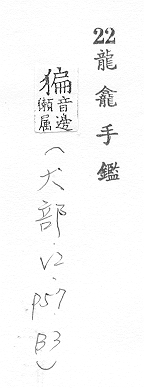 22龍龕手鑑
猵音邊獺属
(犬部.V2.P57.B3)